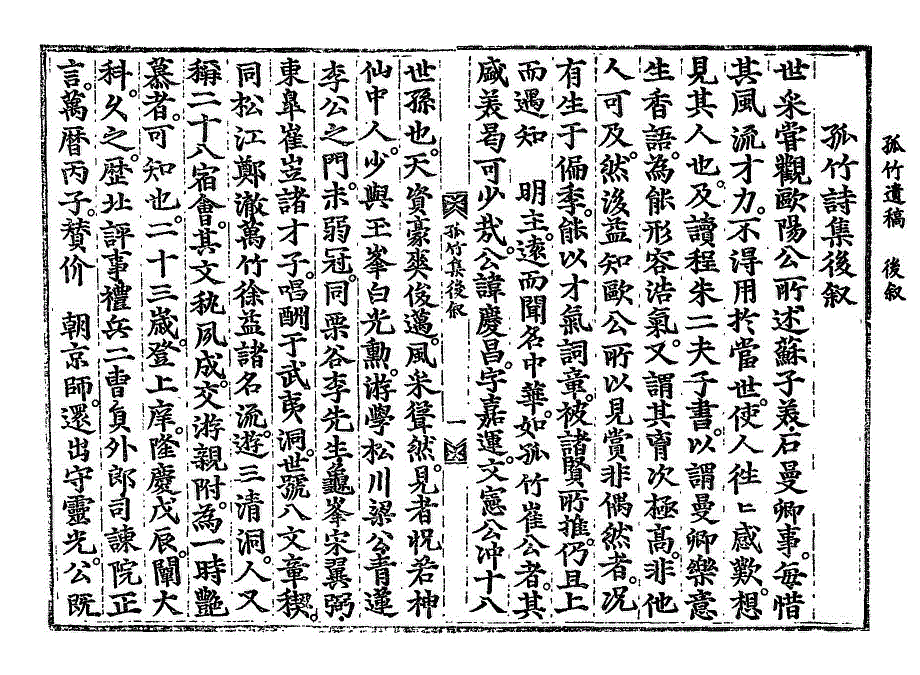 孤竹遺稿　後叙
孤竹詩集後叙
世采嘗觀歐陽公所述蘇子美石曼卿事。每惜
其風流才力。不得用於當世。使人徃〻感歎。想
見其人也。及讀程朱二夫子書。以謂曼卿樂意
生香語。為能形容浩氣。又謂其胷次極高。非他
人可及。然後益知歐公所以見賞非偶然者。况
有生于偏季。能以才氣詞章。被諸賢所推。仍且上
而遇知　明主。遠而聞名中華。如孤竹崔公者。其
盛美曷可少哉。公諱慶昌。字嘉運。文憲公冲十八
孤竹集後叙　一
世孫也。天資豪爽俊邁。風采聳然。見者怳若神
仙中人。少與玉峯白光勳。游學松川梁公青蓮
李公之門。未弱冠。同栗谷李先生龜峯宋翼弼。
東皐崔岦諸才子。唱酬于武夷洞。世號八文章稧。
同松江鄭澈萬竹徐益諸名流。遊三清洞。人又
稱二十八宿會。其文秇夙成。交游親附。為一時艶
慕者。可知也。二十三歲。登上庠。隆慶戊辰。闡大
科。久之。歷北評事。禮兵二曺員外郎司諫院正
言。萬曆丙子。賛价　朝京師。還出守靈光。公既